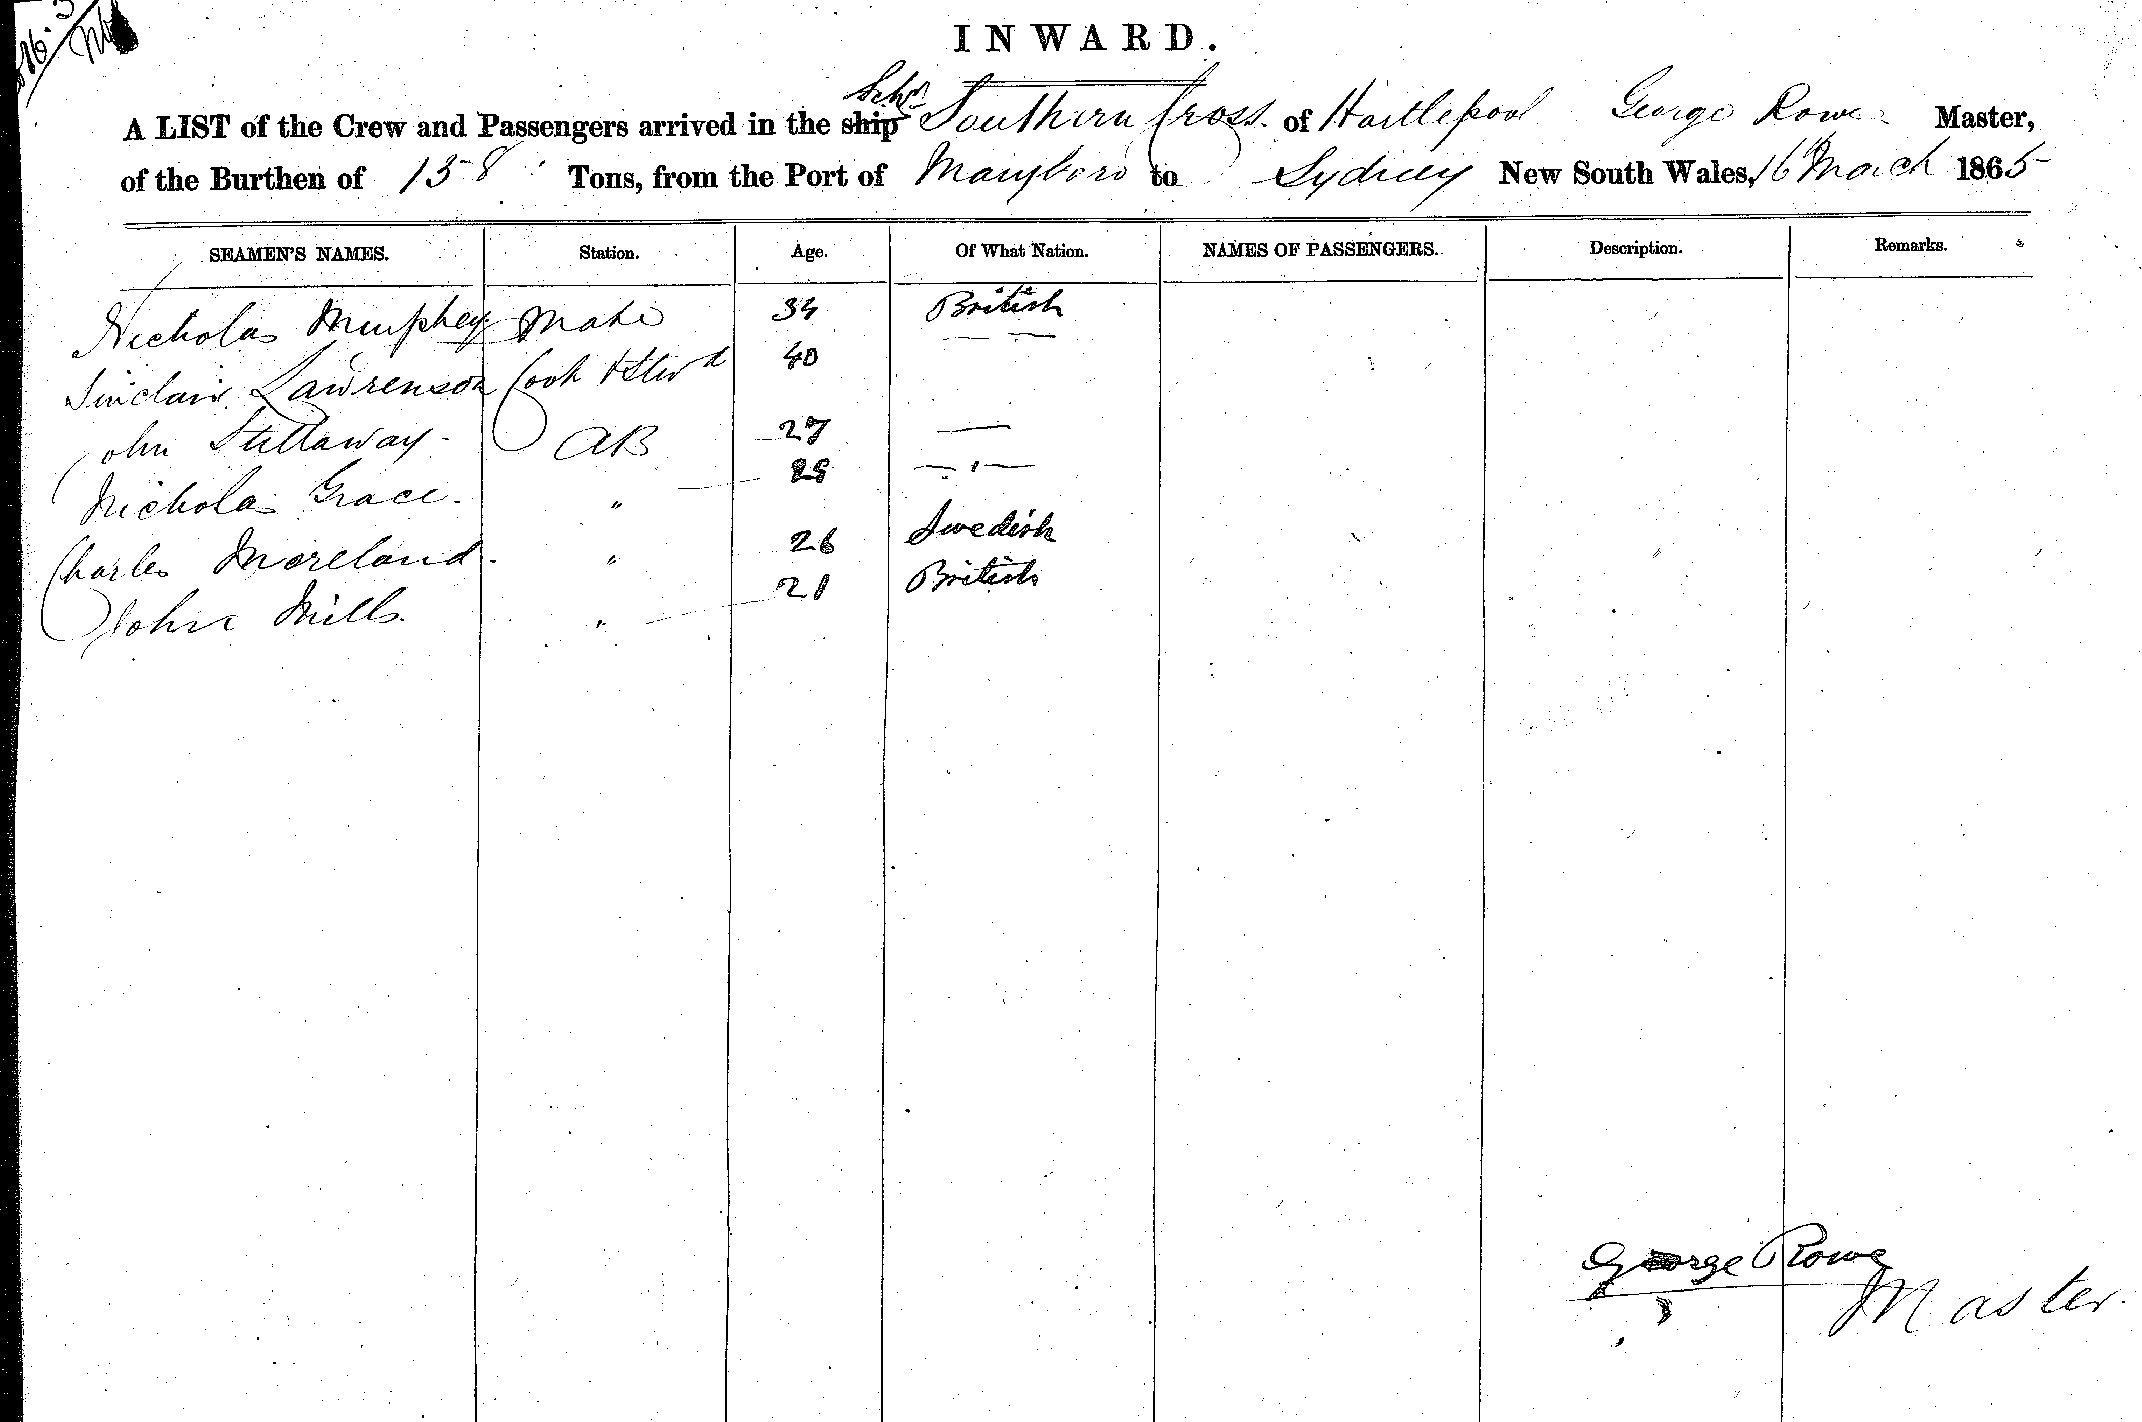 INWARD.
A LIST of the Crew and Passengers arrived in the ship Schr Southern Cross of Hartlepool George Rowe Master,
of the Burthen of 158 Tons, from the Port of Maryboro to Sydney New South Wales, 16 March 1865
SEAMEN'S NAMES. Station. Age. Of What Nation. NAMES OF PASSENGERS. Description. Remarks.
Nicholas Murphey Mate 34 British
Sinclair Lawrenson Cook & Stwd 40 — —
John Stillaway - AB 27 —
Nicholas Grace. " 28 — " —
Charles Moreland. " 26 Swedish
John Mills. " 21 British
George Rowe
Master.